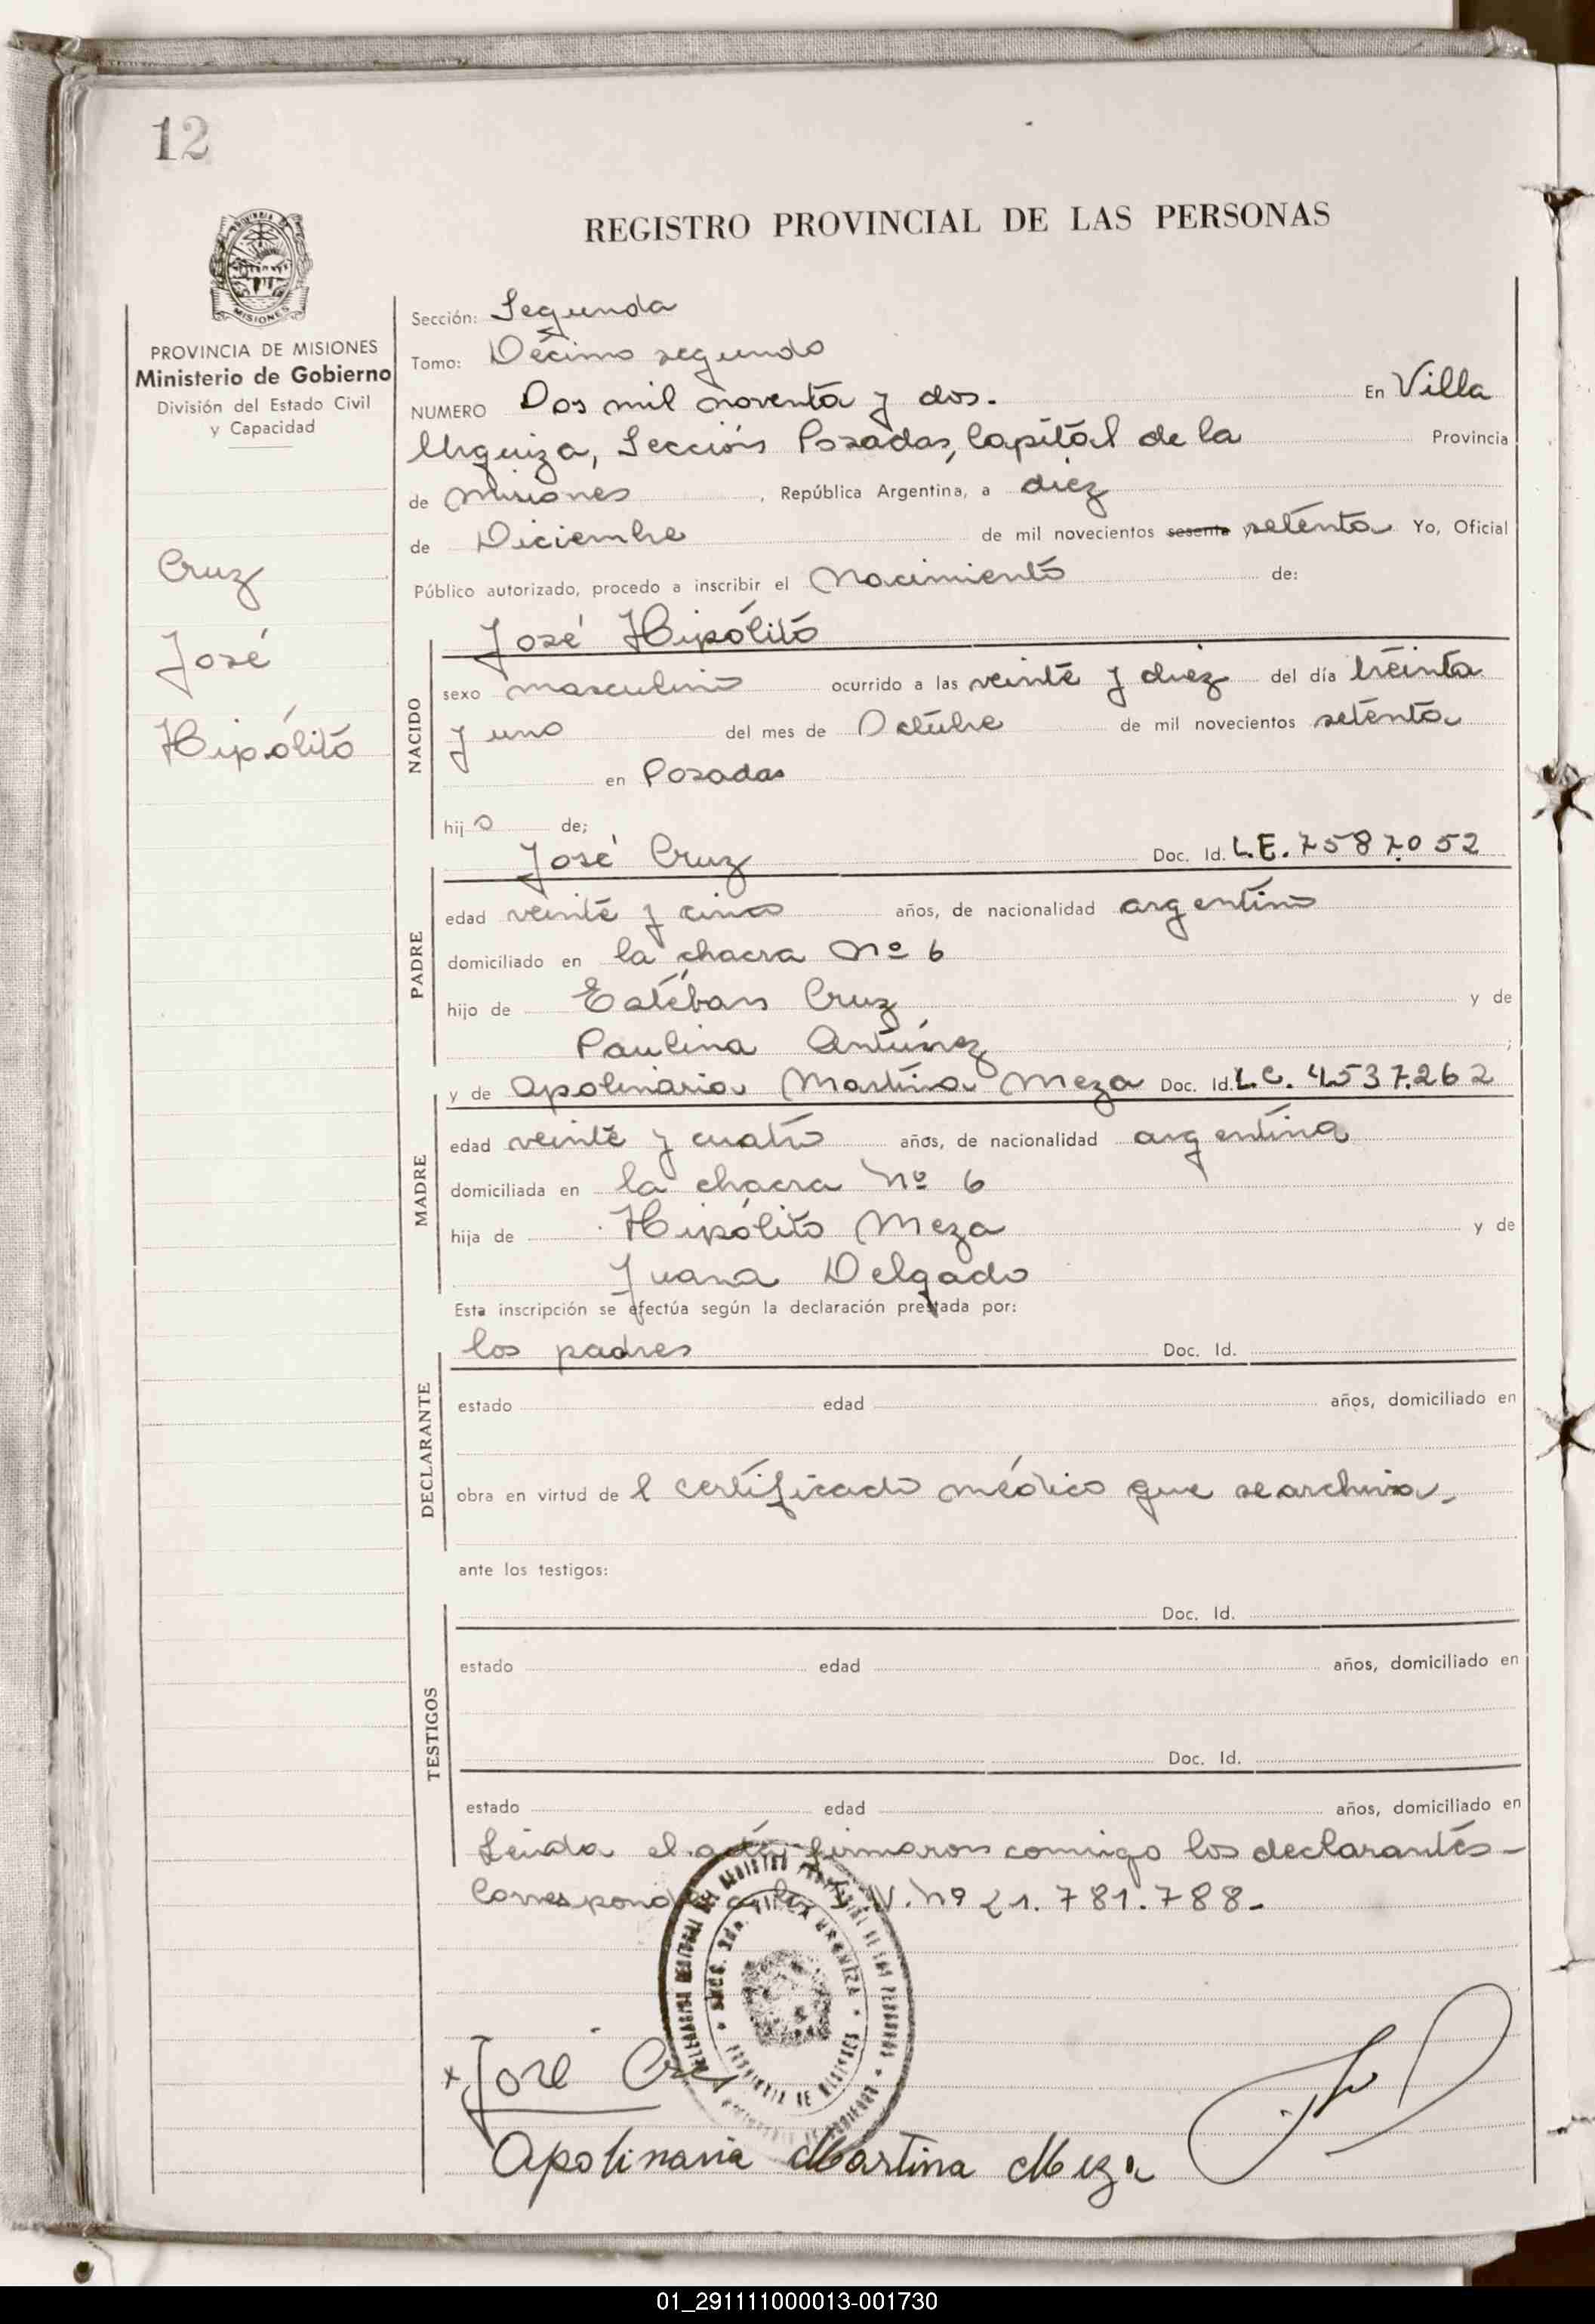 12
REGISTRO PROVINCIAL DE LAS PERSONAS
MISIONES
PROVINCIA DE MISIONES
Ministerio de Gobierno
División del Estado Civil
y Capacidad
Cruz
José
Hipólito
Sección: Segunda
Tomo: Décimo segundo
NUMERO Dos mil noventa y dos. En Villa
Urquiza, Sección Posadas, Capital de la Provincia
de Misiones, República Argentina, a diez
de Diciembre de mil novecientos sesenta y setenta Yo, Oficial
Público autorizado, procedo a inscribir el Nacimiento de:
NACIDO
José Hipólito
sexo masculino ocurrido a las veinte y diez del día treinta
y uno del mes de Octubre de mil novecientos setenta
en Posadas
hijo de;
PADRE
José Cruz Doc. Id. L.E. 7587.052
edad veinte y cinco años, de nacionalidad argentino
domiciliado en la chacra Nº 6
hijo de Estéban Cruz y de
Paulina Antúnez;
MADRE
y de Apolinaria Martina Meza Doc. Id. L.C. 4.537.262
edad veinte y cuatro años, de nacionalidad argentina
domiciliada en la chacra Nº 6
hija de Hipólito Meza y de
Juana Delgado
Esta inscripción se efectúa según la declaración prestada por:
DECLARANTE
los padres Doc. Id.
estado edad años, domiciliado en
obra en virtud de l certificado médico que se archiva.
ante los testigos:
TESTIGOS
Doc. Id.
estado edad años, domiciliado en
Doc. Id.
estado edad años, domiciliado en
Leida el acta, firmaron conmigo los declarantes-
Corresponde a la N. Nº 21.781.788.-
José
Apolinaria Martina Meza
01_291111000013-001730